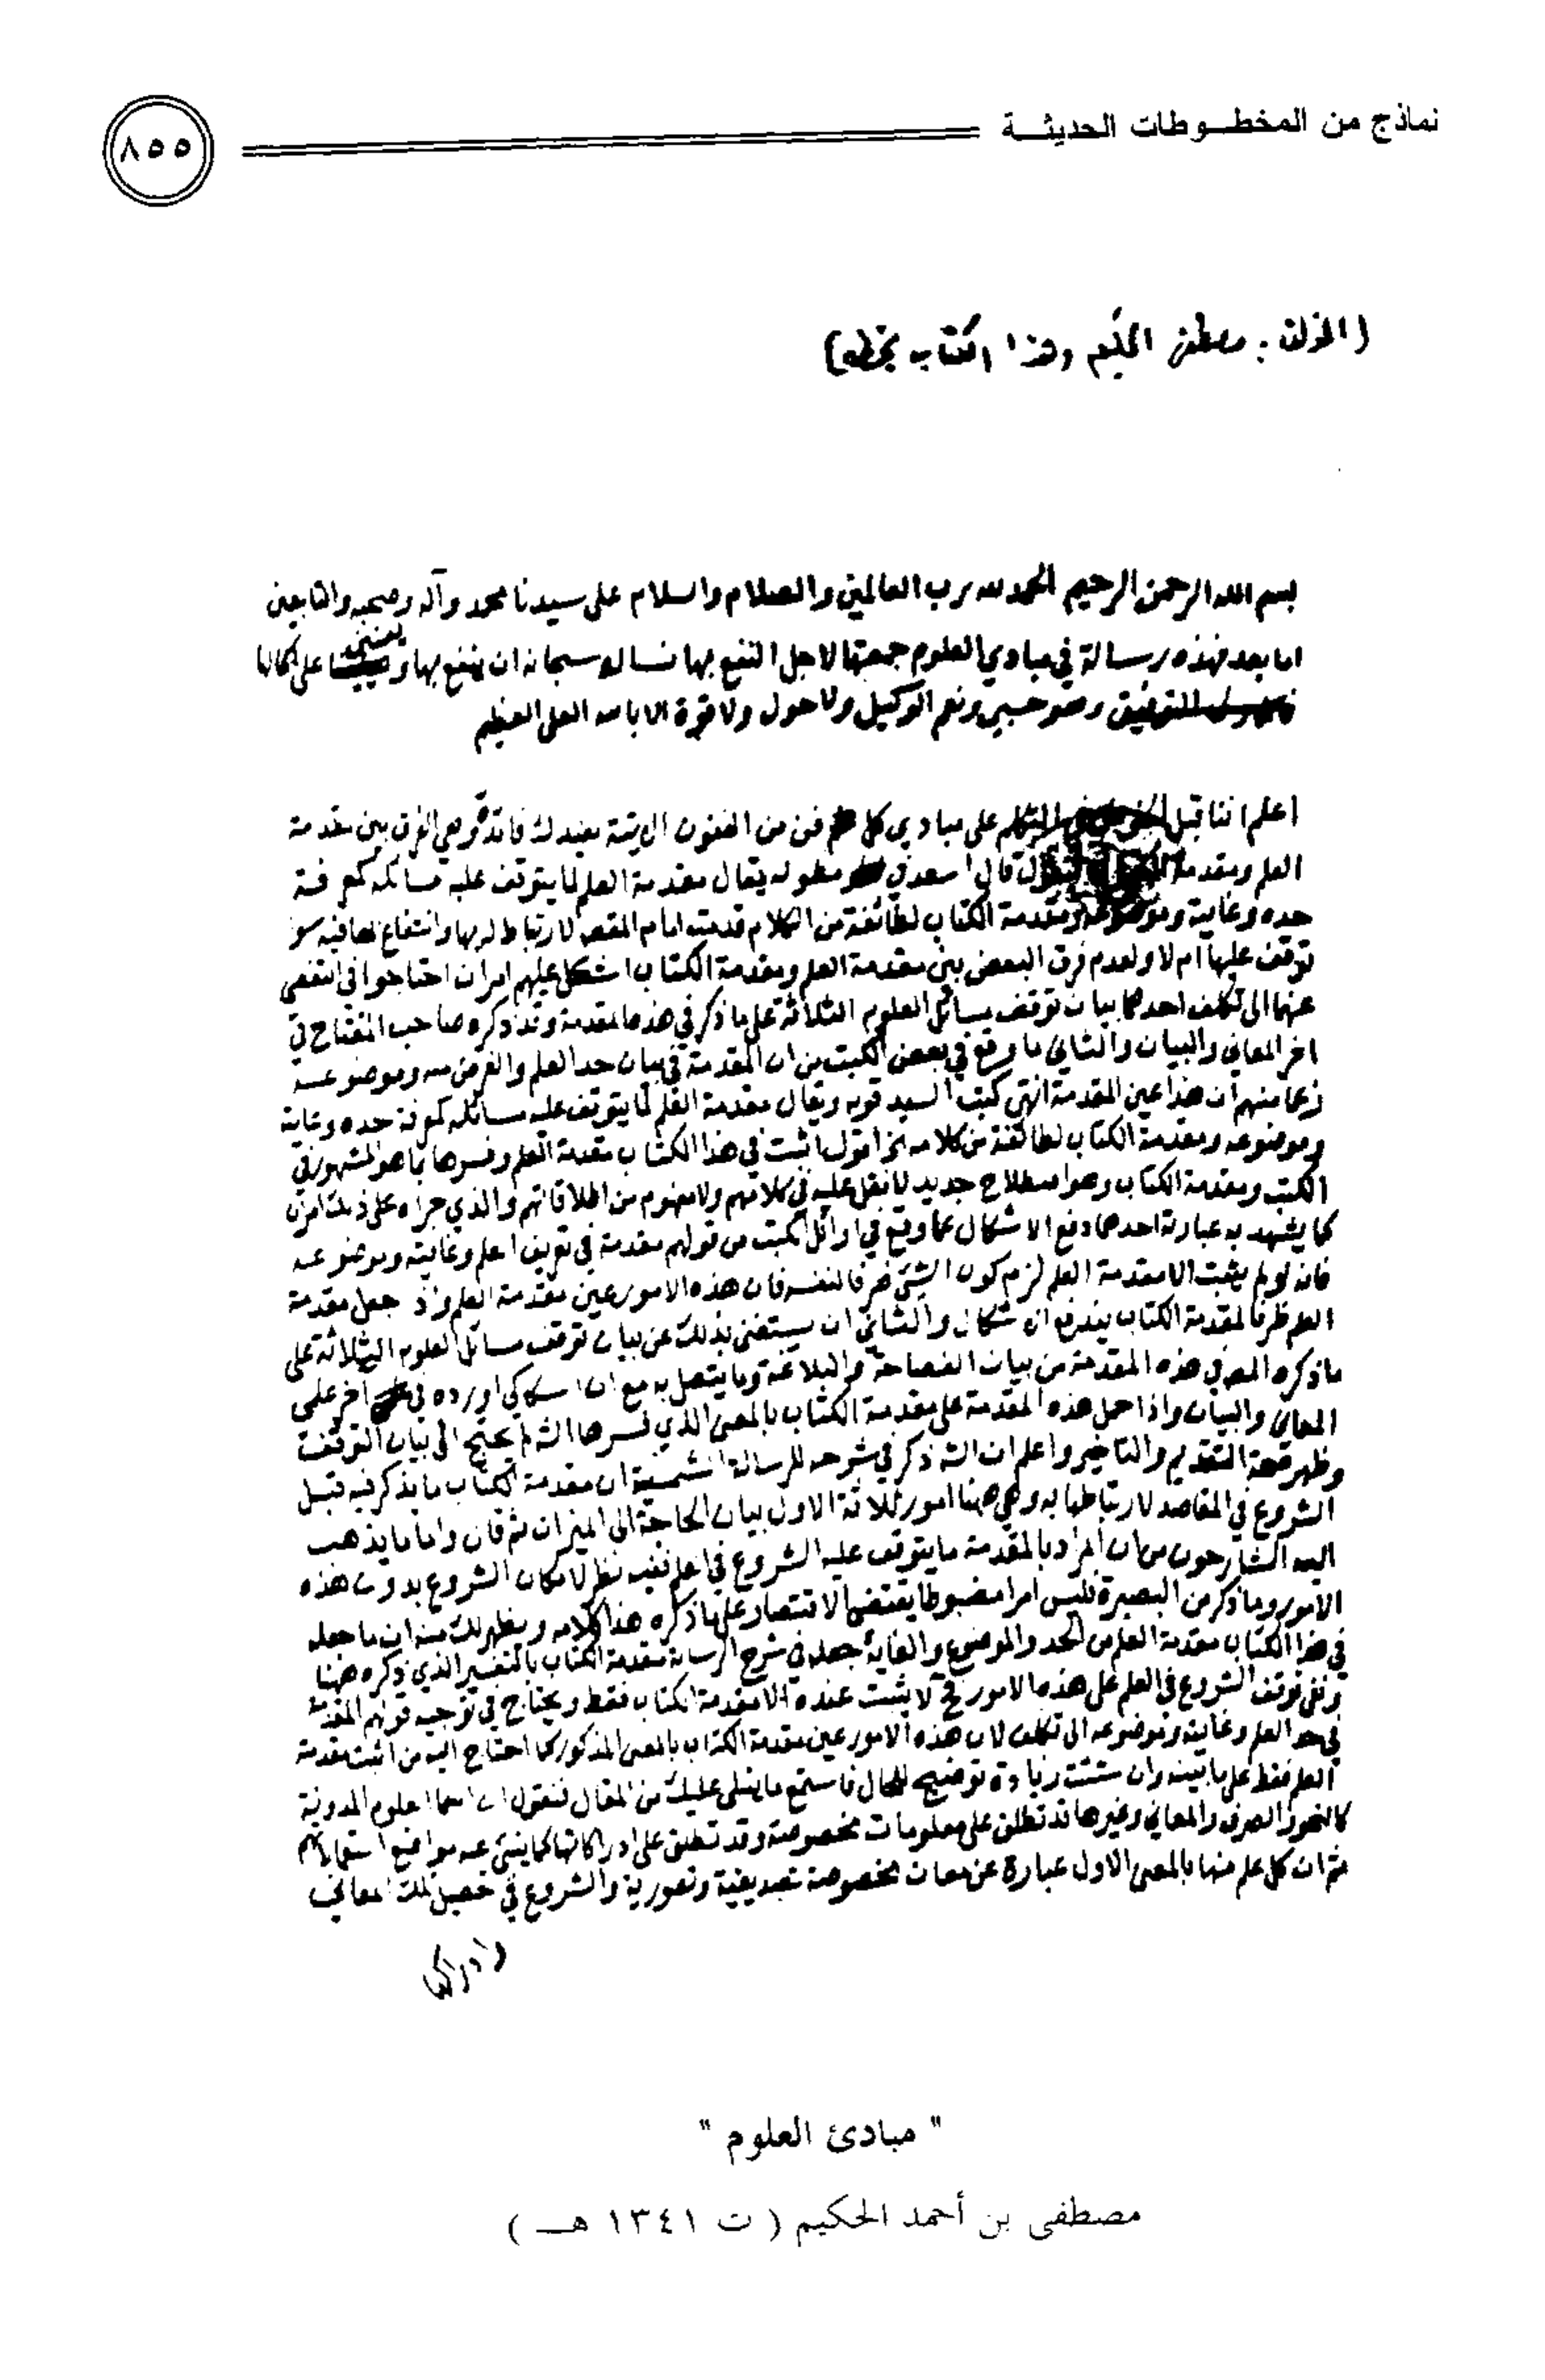 نماذج من المخطـوطات الحديثـة
٨٥٥
(المؤلف : مصطفى الحكيم وهذا الكتاب بخطه)
بسم الله الرحمن الرحيم الحمد لله رب العالمين والصلاة والسلام على سيدنا محمد وآله وصحبه والتابعين
اما بعد فهذه رسالة في مبادي العلوم جمعتها لاجل النفع بها نساله سبحانه ان ينفع بها و على اكمالها
وهو حسبي ونعم الوكيل ولا حول ولا قوة الا بالله العلي العظيم
اعلم اننا قبل التكلم على مبادي كل فن من الفنون الاتية نفيدك فائدة وهي الفرق بين مقدمة
العلم ومقدمة قال السعد في مطوله يقال مقدمة العلم لما يتوقف عليه مسائله كمعرفة
حده وغايته وموضوعه ومقدمة الكتاب لطائفة من الكلام قدمت امام المقصود لارتباط له بها وانتفاع بها فيه سواء
توقف عليها ام لا ولعدم فرق البعض بين مقدمة العلم ومقدمة الكتاب اشكل عليهم امران احتاجوا في التفصي
عنهما الى تكلف احدهما بيان توقف مسائل العلوم الثلاثة على ما ذكر في هذه المقدمة وقد ذكره صاحب المفتاح في
اخر المعاني والبيان والثاني ما وقع في بعض الكتب من ان المقدمة في بيان حد العلم والغرض منه وموضوعه
زعما منهم ان هذا عين المقدمة انتهى كتب السيد قوله ويقال مقدمة العلم لما يتوقف عليه مسائله كمعرفة حده وغايته
وموضوعه ومقدمة الكتاب لطائفة من كلامه الخ اقول اثبت في هذا الكتاب مقدمة العلم وفسرها بما هو المشهور في
الكتب ومقدمة الكتاب وهو اصطلاح جديد لا نقل عليه في كلامهم ولا مفهوم من اطلاقاتهم والذي جراه على ذلك امران
كما يشهد به عبارته احدهما دفع الاشكال عما وقع في اوائل الكتب من قولهم مقدمة في تعريف العلم وغايته وموضوعه
فانه لو لم يثبت الا مقدمة العلم لزم كون الشيء ظرفا لنفسه فان هذه الامور عين مقدمة العلم واذ جعل مقدمة
العلم ظرفا لمقدمة الكتاب يندفع الاشكال والثاني ان يستغنى بذلك عن بيان توقف مسائل العلوم الثلاثة على
ما ذكره المص في هذه المقدمة من بيان الفصاحة والبلاغة وما يتصل به مع ان السكاكي اورده في اخر علمي
المعاني والبيان واذا حمل هذه المقدمة على مقدمة الكتاب بالمعنى الذي فسرها الش لم يحتج الى بيان التوقف
وظهر صحة التقديم والتاخير واعلم ان الش ذكر في شرحه للرسالة الشمسية ان مقدمة الكتاب ما يذكر فيه قبل
الشروع في المقاصد لارتباطها به وهي ههنا امور ثلاثة الاول بيان الحاجة الى الميزان ثم قال واما ما يذهب
اليه الشارحون من ان المراد بالمقدمة ما يتوقف عليه الشروع في العلم ففيه نظر لامكان الشروع بدون هذه
الامور وما ذكر من البصيرة فليس امرا مضبوطا يقتضي الاقتصار على ما ذكره هذا كلامه ويظهر لك منه ان ما جعله
في هذا الكتاب مقدمة العلم من الحد والموضوع والغاية جعله في شرح الرسالة مقدمة الكتاب بالتفسير الذي ذكره ههنا
ونفى توقف الشروع في العلم على هذه الامور فح لا يثبت عنده الا مقدمة الكتاب فقط ويحتاج في توجيه قولهم المقدمة
في حد العلم وغايته وموضوعه الى تكلف لان هذه الامور عين مقدمة الكتاب بالمعنى المذكور كما احتاج اليه من اثبت مقدمة
العلم فقط على ما بينه وان شئت زيادة توضيح للحال فاستمع ما يتلى عليك من المقال فنقول ان اسماء العلوم المدونة
كالنحو والصرف والمعاني وغيرها قد تطلق على معلومات مخصوصة وقد تطلق على ادراكاتها كما ينبئ عنه مواضع استعمالاتهم
ثم ان كل علم منها بالمعنى الاول عبارة عن معان مخصوصة تصديقية وتصورية والشروع في تحصيل تلك المعاني
" مبادئ العلوم "
مصطفى بن أحمد الحكيم ( ت ١٣٤١ هـ )